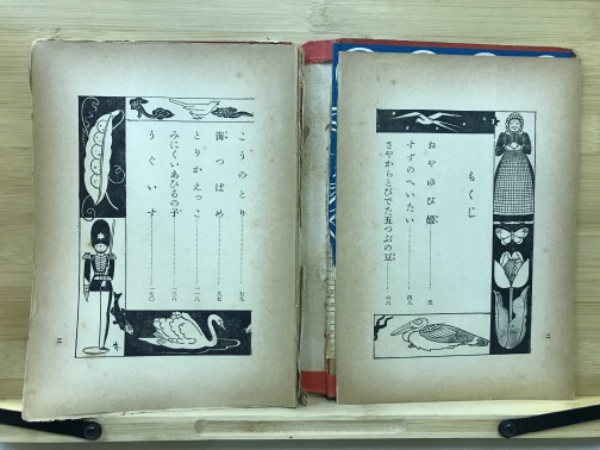 もくじ
おやゆび姫 五
すずのへいたい 四八
さやからとびでた五つぶの豆 六六
こうのとり 七九
海つばめ 九七
とりかえっこ 一一八
みにくいあひるの子 一三六
うぐいす 一七〇
二